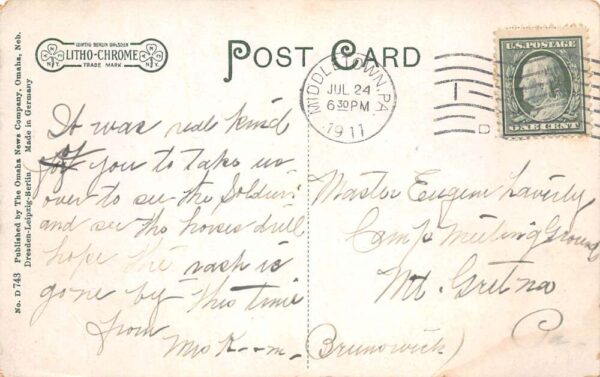 No. D 743 Published by The Omaha News Company, Omaha, Neb.
Dresden-Leipzig-Berlin Made in Germany
LEIPZIG BERLIN DRESDEN
LITHO-CHROME
TRADE MARK
N. Y.
N. Y.
POST CARD
MIDDLETOWN, PA.
JUL 24
6 30 PM
1911
U.S. POSTAGE
ONE CENT
It was real kind
of you to take us
over to see the Soldiers
and see the horses drill
hope the rash is
gone by this time
from
Mrs K
(Brunswick)
Master Eugene Laverty
Camp Meeting Ground
Mt. Gretna
Pa.